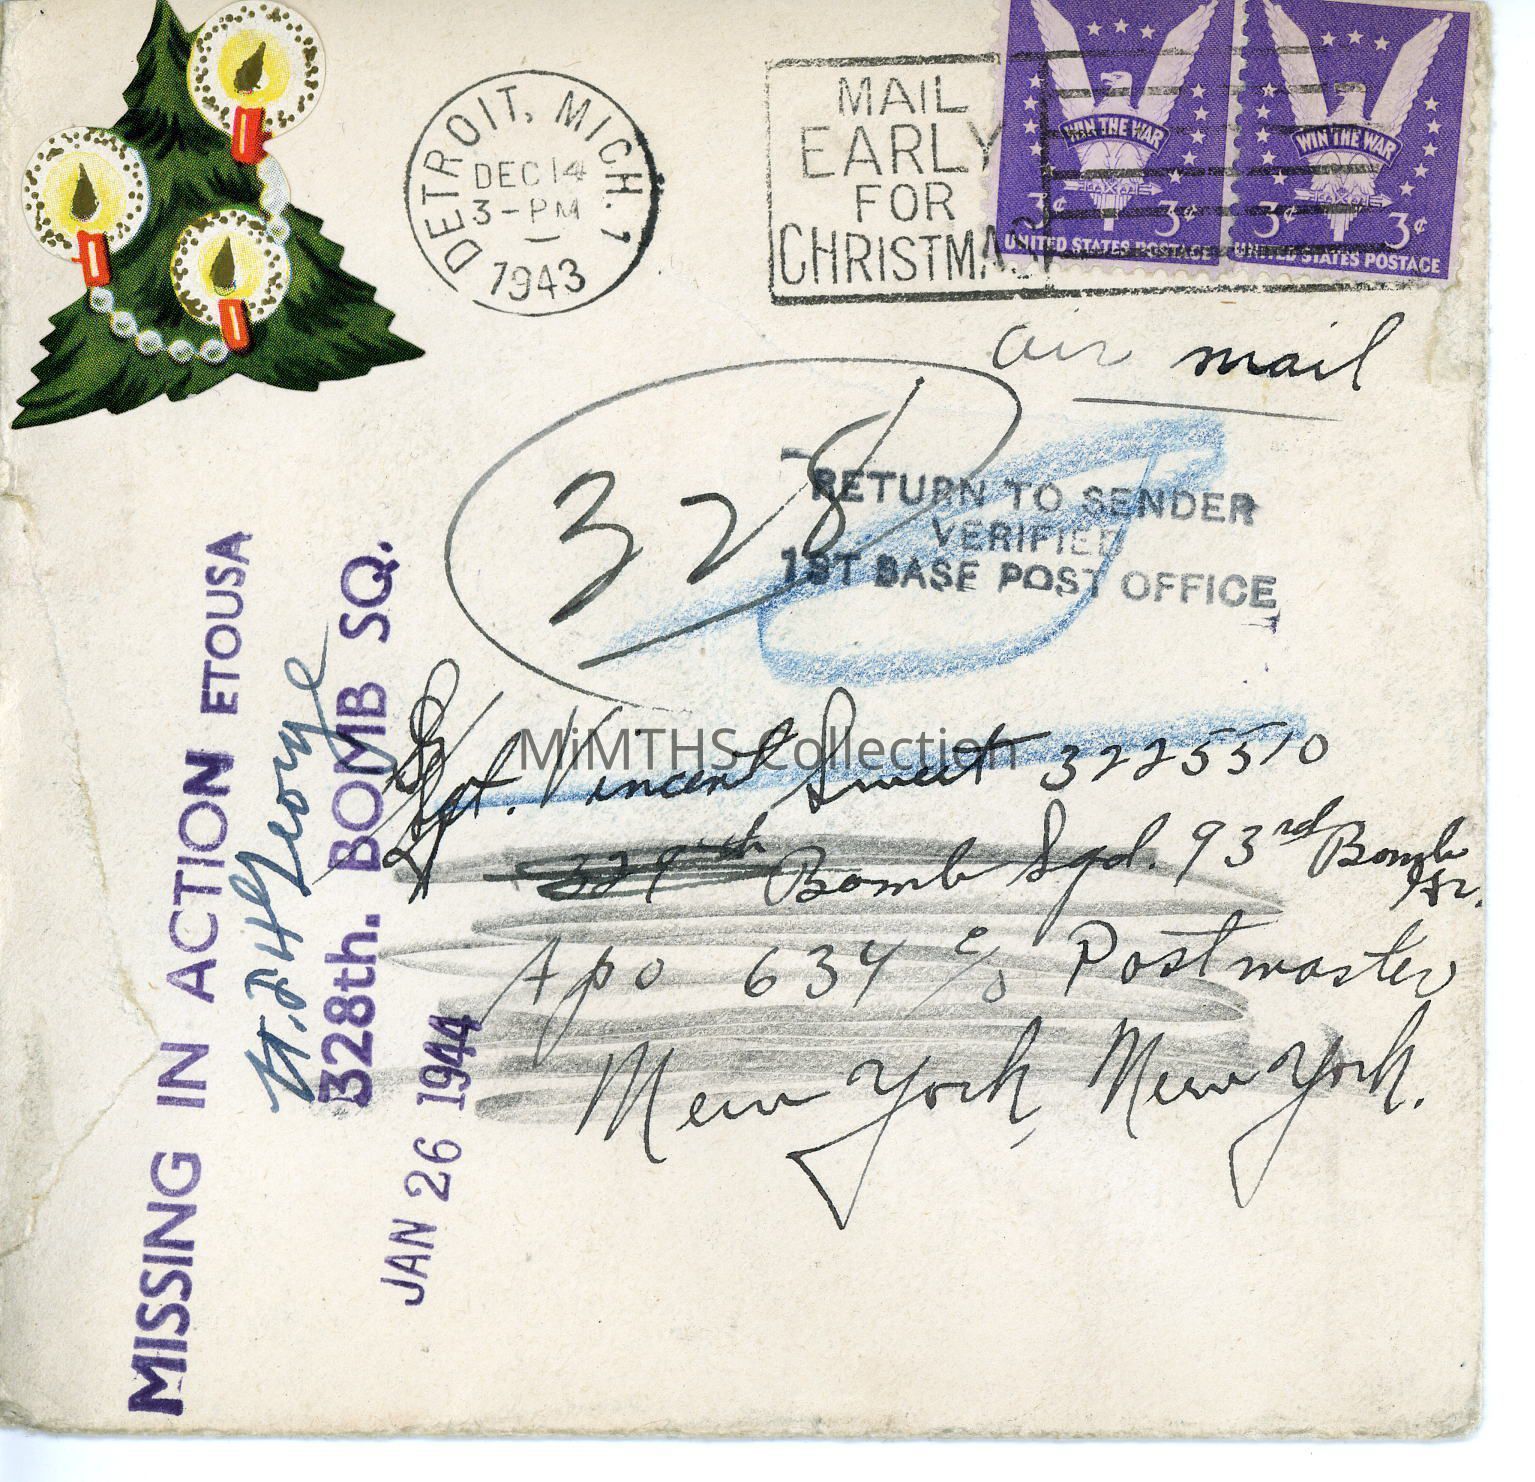 DETROIT, MICH. 7
DEC 14
3-PM
1943
MAIL
EARLY
FOR
CHRISTMAS
WIN THE WAR
3¢ 3¢
UNITED STATES POSTAGE
WIN THE WAR
3¢ 3¢
UNITED STATES POSTAGE
air mail
328
RETURN TO SENDER
VERIFIED
1ST BASE POST OFFICE
Sgt. Vincent Sweet 32255510
329th Bomb Sqd. 93rd Bomb Gr.
Apo 634 c/o Postmaster
New York, New York.
MISSING IN ACTION ETOUSA
328th. BOMB SQ.
JAN 26 1944
MiMTHS Collection